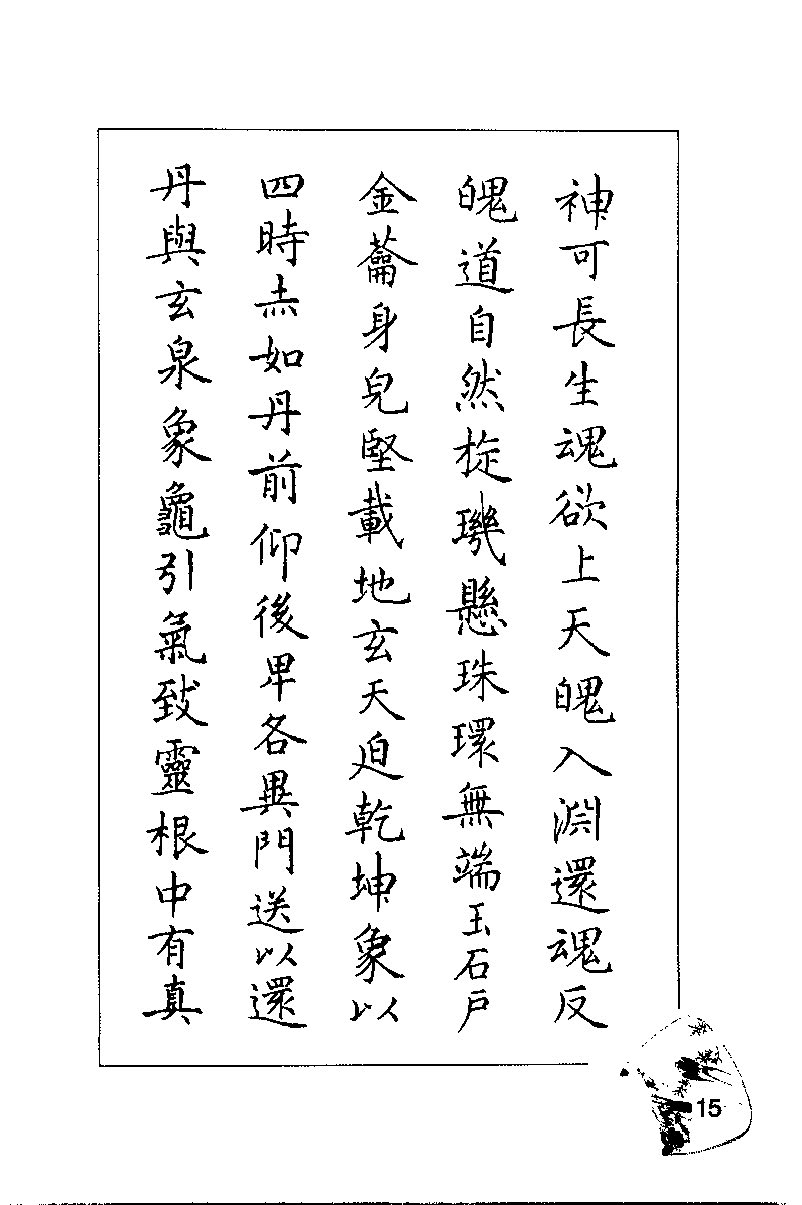 神可長生魂欲上天魄入淵還魂反
魄道自然㨁璣懸珠環無端玉石戶
金籥身皃堅載地玄天迫乾坤象以
四時赤如丹前仰後卑各異門送以還
丹與玄泉象龜引氣致靈根中有真
15